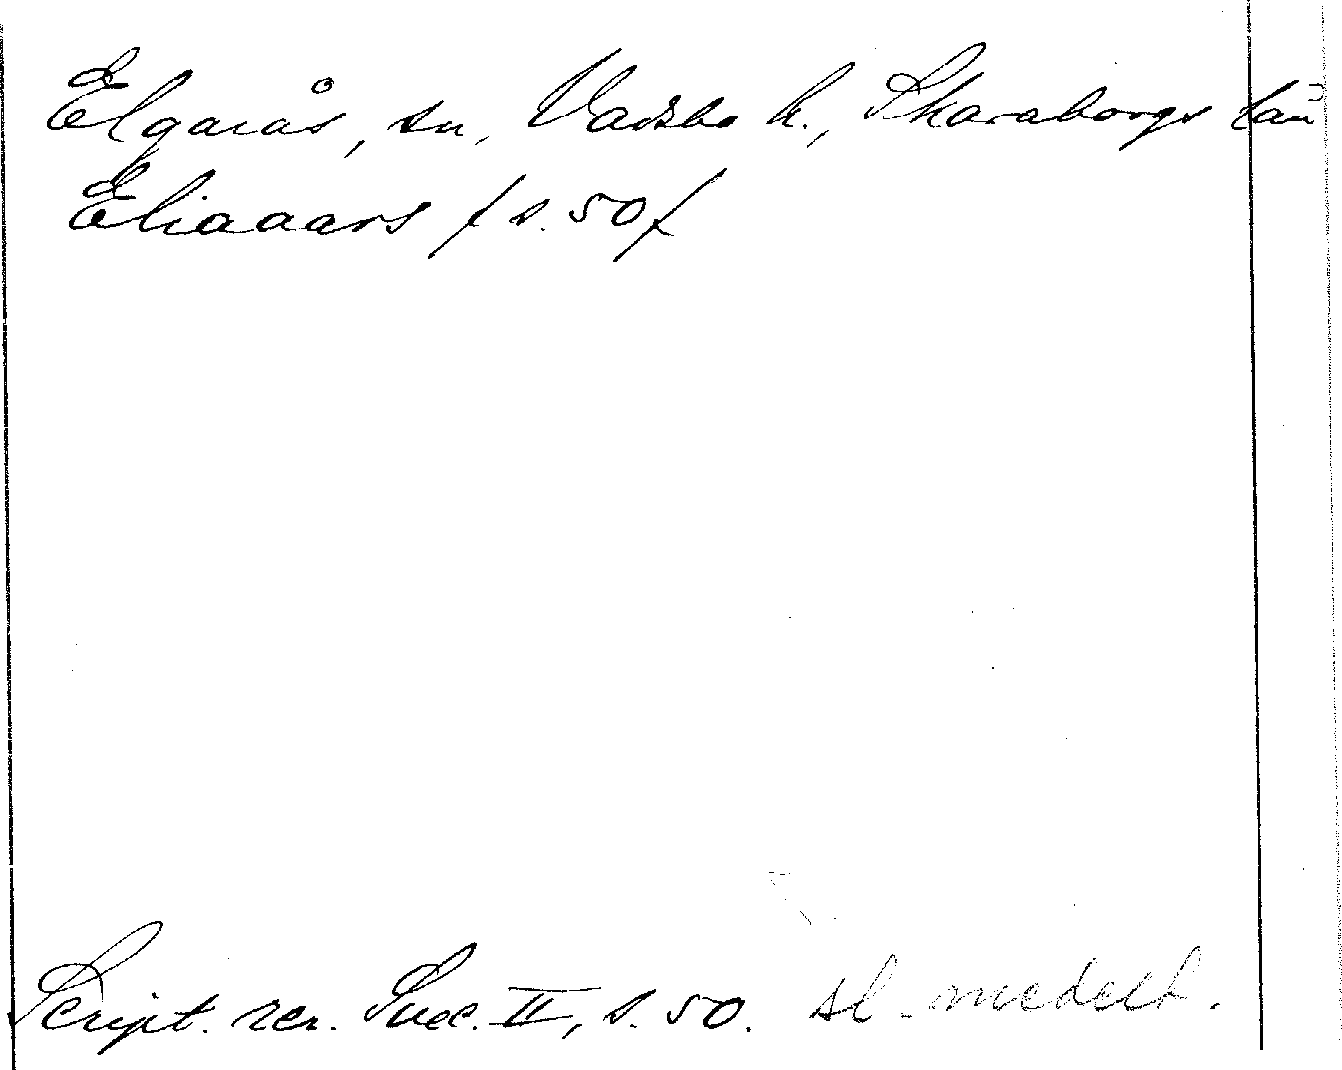 Elgarås, sn, Vadsbo h., Skaraborgs län
Eliaaars / s. 50/
Script. rer. Suec. II, s. 50. sl. medelt.